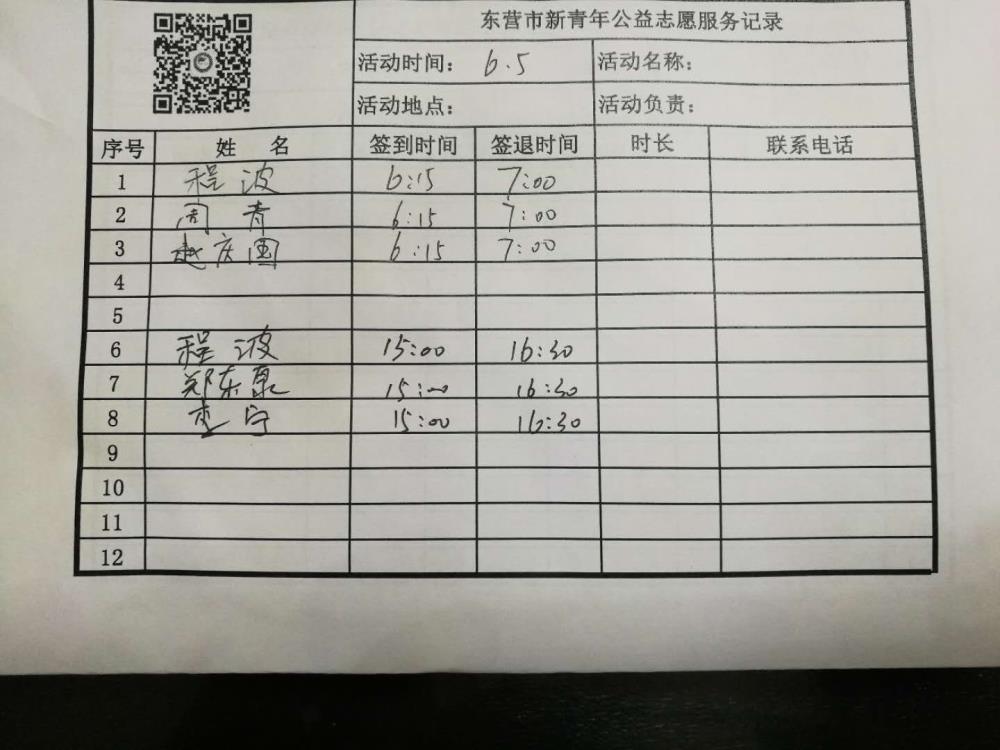 东营市新青年公益志愿服务记录
活动时间： 6.5 活动名称：
活动地点： 活动负责：
序号 姓 名 签到时间 签退时间 时长 联系电话
1 程波 6:15 7:00
2 周青 6:15 7:00
3 赵庆国 6:15 7:00
4
5
6 程波 15:00 16:30
7 郑东泉 15:00 16:30
8 15:00 16:30
9
10
11
12